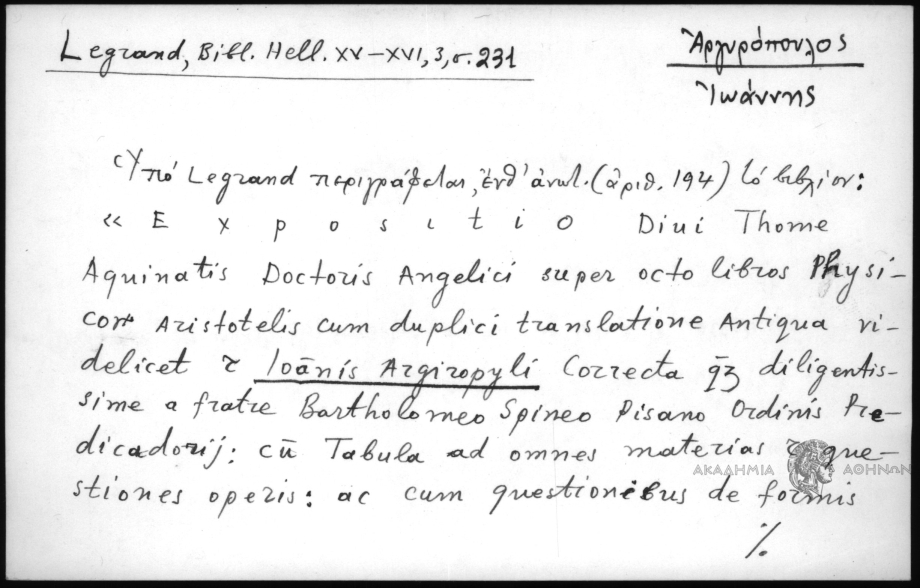 Legrand, Bibl. Hell. XV–XVI, 3, σ. 231
Ἀργυρόπουλος
Ἰωάννης
Ὑπό Legrand περιγράφεται, ἐνθ' ἀνωτ. (ἀριθ. 194) τό βιβλίον:
« Expositio Diui Thome
Aquinatis Doctoris Angelici super octo libros Physi-
cor Aristotelis cum duplici translatione Antiqua vi-
delicet τ Ioānis Argiropyli Correcta q̄ʒ diligentis-
sime a fratre Bartholomeo Spineo Pisano Ordinis Pre-
dicadorij: cū Tabula ad omnes materias τ que-
stiones operis: ac cum questionibus de formis
ΑΚΑΔΗΜΙΑ ΑΘΗΝΩΝ
./.